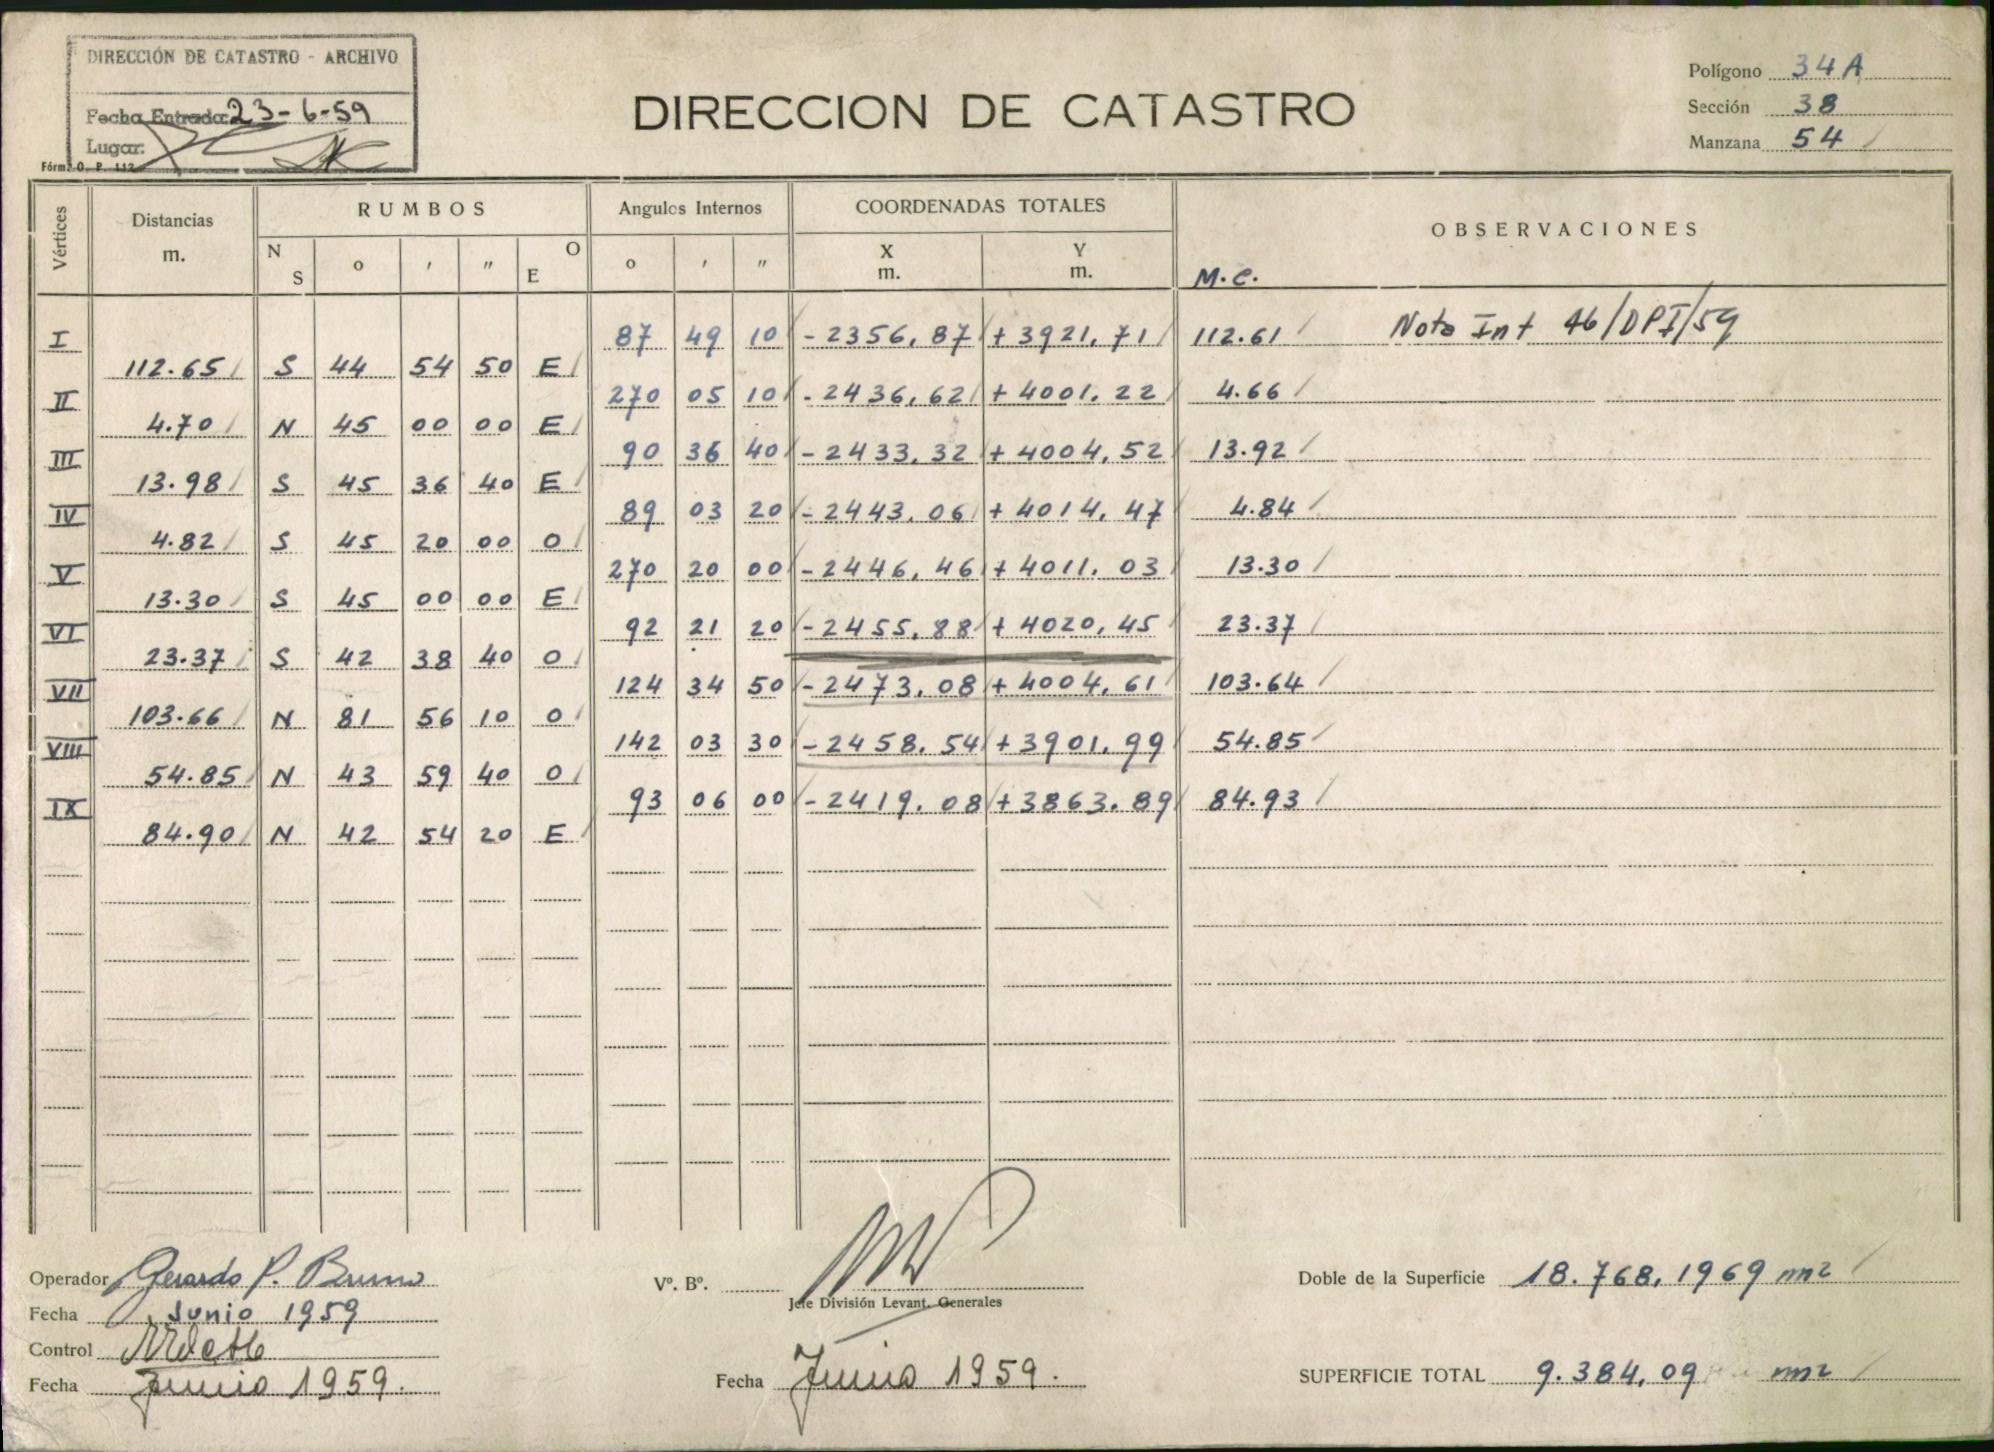 DIRECCIÓN DE CATASTRO - ARCHIVO
Fecha Entrada: 23-6-59
Lugar:
Fórm. O. P. 112
DIRECCION DE CATASTRO
Polígono 34A
Sección 38
Manzana 54
Vértices Distancias m. RUMBOS Angulos Internos COORDENADAS TOTALES OBSERVACIONES
N S o ' " O E o ' " X m. Y m. M.C.
I 87 49 10 - 2356,87 + 3921,71 112.61 Nota Int 46/DPI/59
112.65 S 44 54 50 E
II 270 05 10 - 2436,62 + 4001.22 4.66
4.70 N 45 00 00 E
III 90 36 40 - 2433,32 + 4004,52 13.92
13.98 S 45 36 40 E
IV 89 03 20 - 2443,06 + 4014,47 4.84
4.82 S 45 20 00 O
V 270 20 00 - 2446,46 + 4011.03 13.30
13.30 S 45 00 00 E
VI 92 21 20 - 2455,88 + 4020,45 23.37
23.37 S 42 38 40 O
VII 124 34 50 - 2473,08 + 4004,61 103.64
103.66 N 81 56 10 O
VIII 142 03 30 - 2458.54 + 3901.99 54.85
54.85 N 43 59 40 O
IX 93 06 00 - 2419.08 + 3863.89 84.93
84.90 N 42 54 20 E
Operador Gerardo P. Bruno
Fecha Junio 1959
Control
Fecha Junio 1959.
Vº. Bº.
Jefe División Levant. Generales
Fecha Junio 1959.
Doble de la Superficie 18.768,1969 m2
SUPERFICIE TOTAL 9.384,09 m2